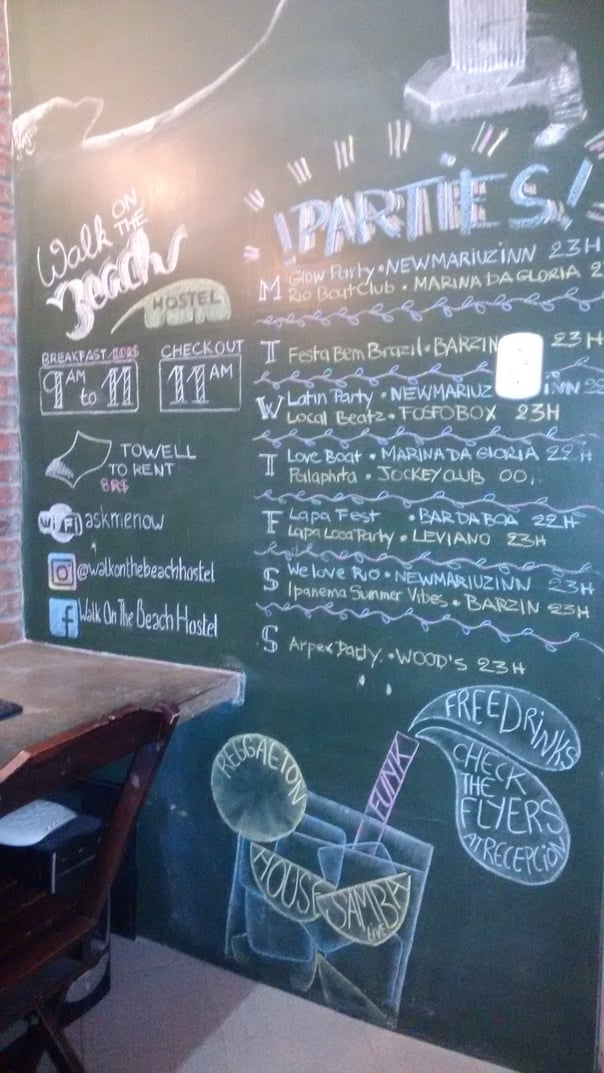 Walk ON THE
Beach
HOSTEL
BREAKFAST
9 AM to 11
CHECKOUT
11 AM
TOWELL
TO RENT
8R$
WiFi askmenow
@walkonthebeachhostel
f Walk On The Beach Hostel
¡PARTIES!
M Glow Party • NEWMARIUZINN 23H
Rio Boat Club • MARINA DA GLORIA
T Festa Bem Brazil • BARZIN 23H
W Latin Party • NEWMARIUZ INN
Local Beatz • FOSFOBOX 23H
T Love Boat • MARINA DA GLORIA 22H
Palaphita • JOCKEY CLUB 00
F Lapa Fest • BAR DA BOA 22H
Lapa Loca Party • LEVIANO 23H
S We love Rio • NEWMARIUZINN 23H
Ipanema Summer Vibes • BARZIN 23H
S Arpex Party • WOOD'S 23H
FREE DRINKS
CHECK
THE
FLYERS
AT RECEPCION
REGGAETON
FUNK
HOUSE
SAMBA
LIVE